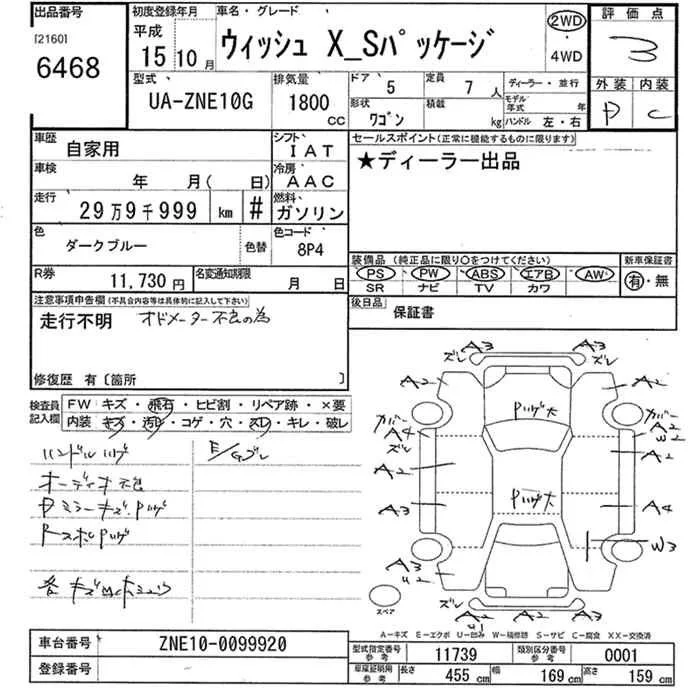 出品番号
[2160]
6468
初度登録年月 車名・グレード
平成
15年10月
ウィッシュ X_Sパッケージ
2WD
・
4WD
評価点
3
外装 内装
D C
型式
UA-ZNE10G
排気量
1800
CC
ドア 5
定員 7人
形状 ワゴン
積載 kg
ディーラー・並行
モデル年式 年
ハンドル 左・右
車歴 自家用
シフト IAT
車検 年 月( 日)
冷房 AAC
走行 29万9千999 km #
燃料 ガソリン
色 ダークブルー 色替
色コード 8P4
R券 11,730円
名変通知期限 月 日
セールスポイント(正常に機能するものに限ります)
★ディーラー出品
装備品 (純正品に限り○をつけてください)
新車保証書
PS PW ABS エアB AW
SR ナビ TV カワ
有・無
後日品 保証書
注意事項申告欄(不具合内容等は具体的に記入して下さい)
走行不明 オドメーター不良の為
修復歴 有〔箇所 〕
検査員記入欄
FW キズ・飛石・ヒビ割・リペア跡・×要
内装 キズ・汚れ・コゲ・穴・スレ・キレ・破レ
ハンドルハゲ
E/Gブレ
オーディオ不良
Dミラーキズ ハゲ
RスポハゲA3 ズレ
A3 ズレ
A2
A2
カバー
A4
ズレ
A2
A3
A3
U2
ズレ
A2
U1
A2
A3
カバー
A2
W2
A2
A4
W3
ハゲ大
ハゲ大
スペア
A-キズ E-エクボ U-凹み W-補修跡 S-サビ C-腐食 XX-交換済
車台番号 ZNE10-0099920
登録番号
型式指定番号 参考 11739
類別区分番号 参考 0001
車庫証明用 参考 長さ 455cm 幅 169cm 高さ 159cm